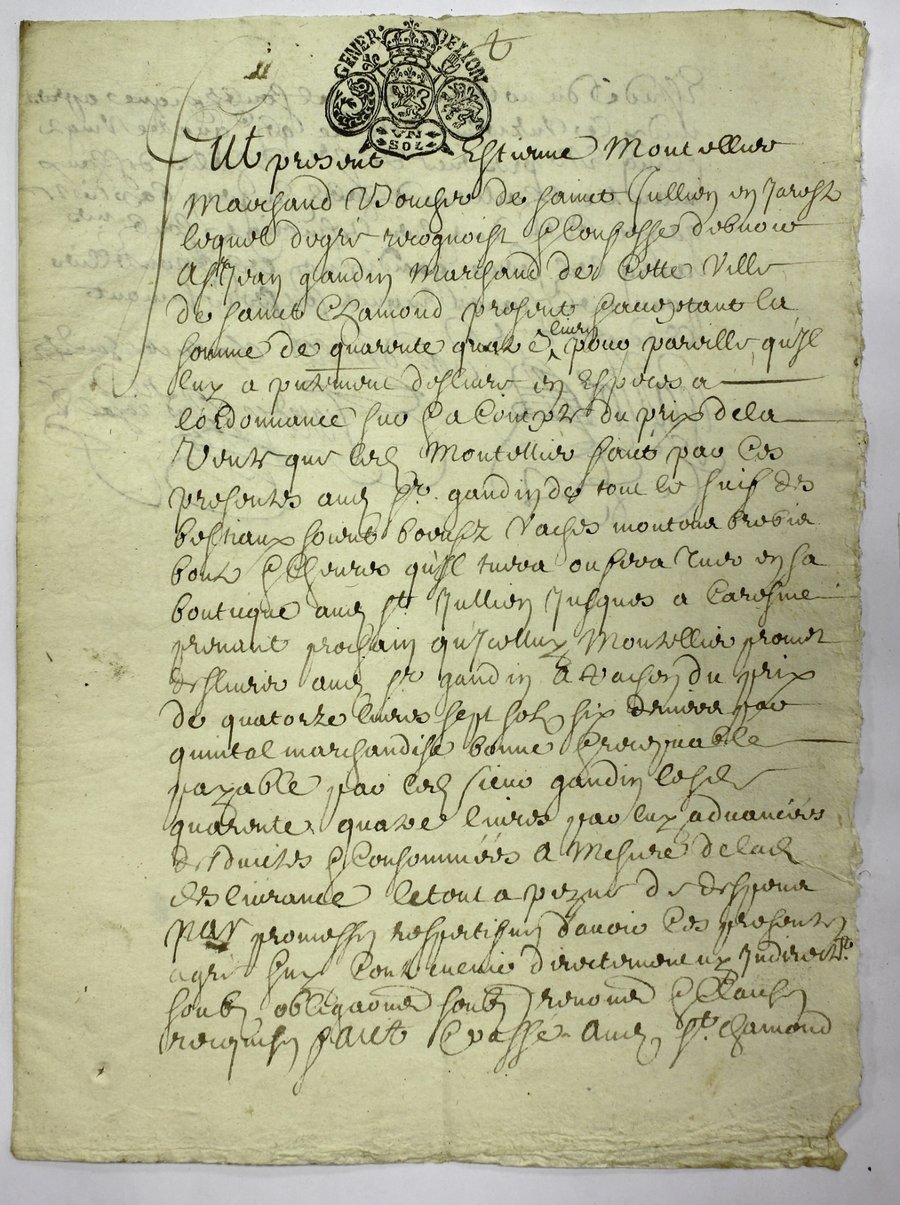 GENER. DE LION
VN
SOL
Fut present Estienne Montellier
Marchand Boucher de sainct Jullien en Jarest
lequel de gré recognoist & Confesse debvoir
A sr Jean gandin Marchand de Cette Ville
de sainct Chamond present & acceptant la
somme de quarente quatre livres pour pareille qu'Il
luy a putement deslivré en Especes a
l'ordonnance sur & a Compte du prix de la
Vente que led Montellier faict par Ces
presentes aud sr. gandin de tout le suif des
bestiaux soient boeufz Vaches moutons brebis
boucz & Chevres qu'Il tuera ou fera tuer en sa
boutique aud st Jullien Jusques a Caresme
prenant prochain qu'Icelluy Montellier promet
deslivrer aud sr gandin a raison du prix
de quatorze livres sept solz six deniers par
quintal marchandise bonne & recepvable
payable par led sieur gandin lesd
quarente quatre livres par luy advancées
desduites & Consommées A Mesure de lad
deslivrance le tout a peyne de despens
par promesses respectives d'avoir Ces presentes
agré sans Contrevenir directement ny Indirectt.
soubz obligaones soubz renones & Clauses
requises faict & passé aud st. chamond